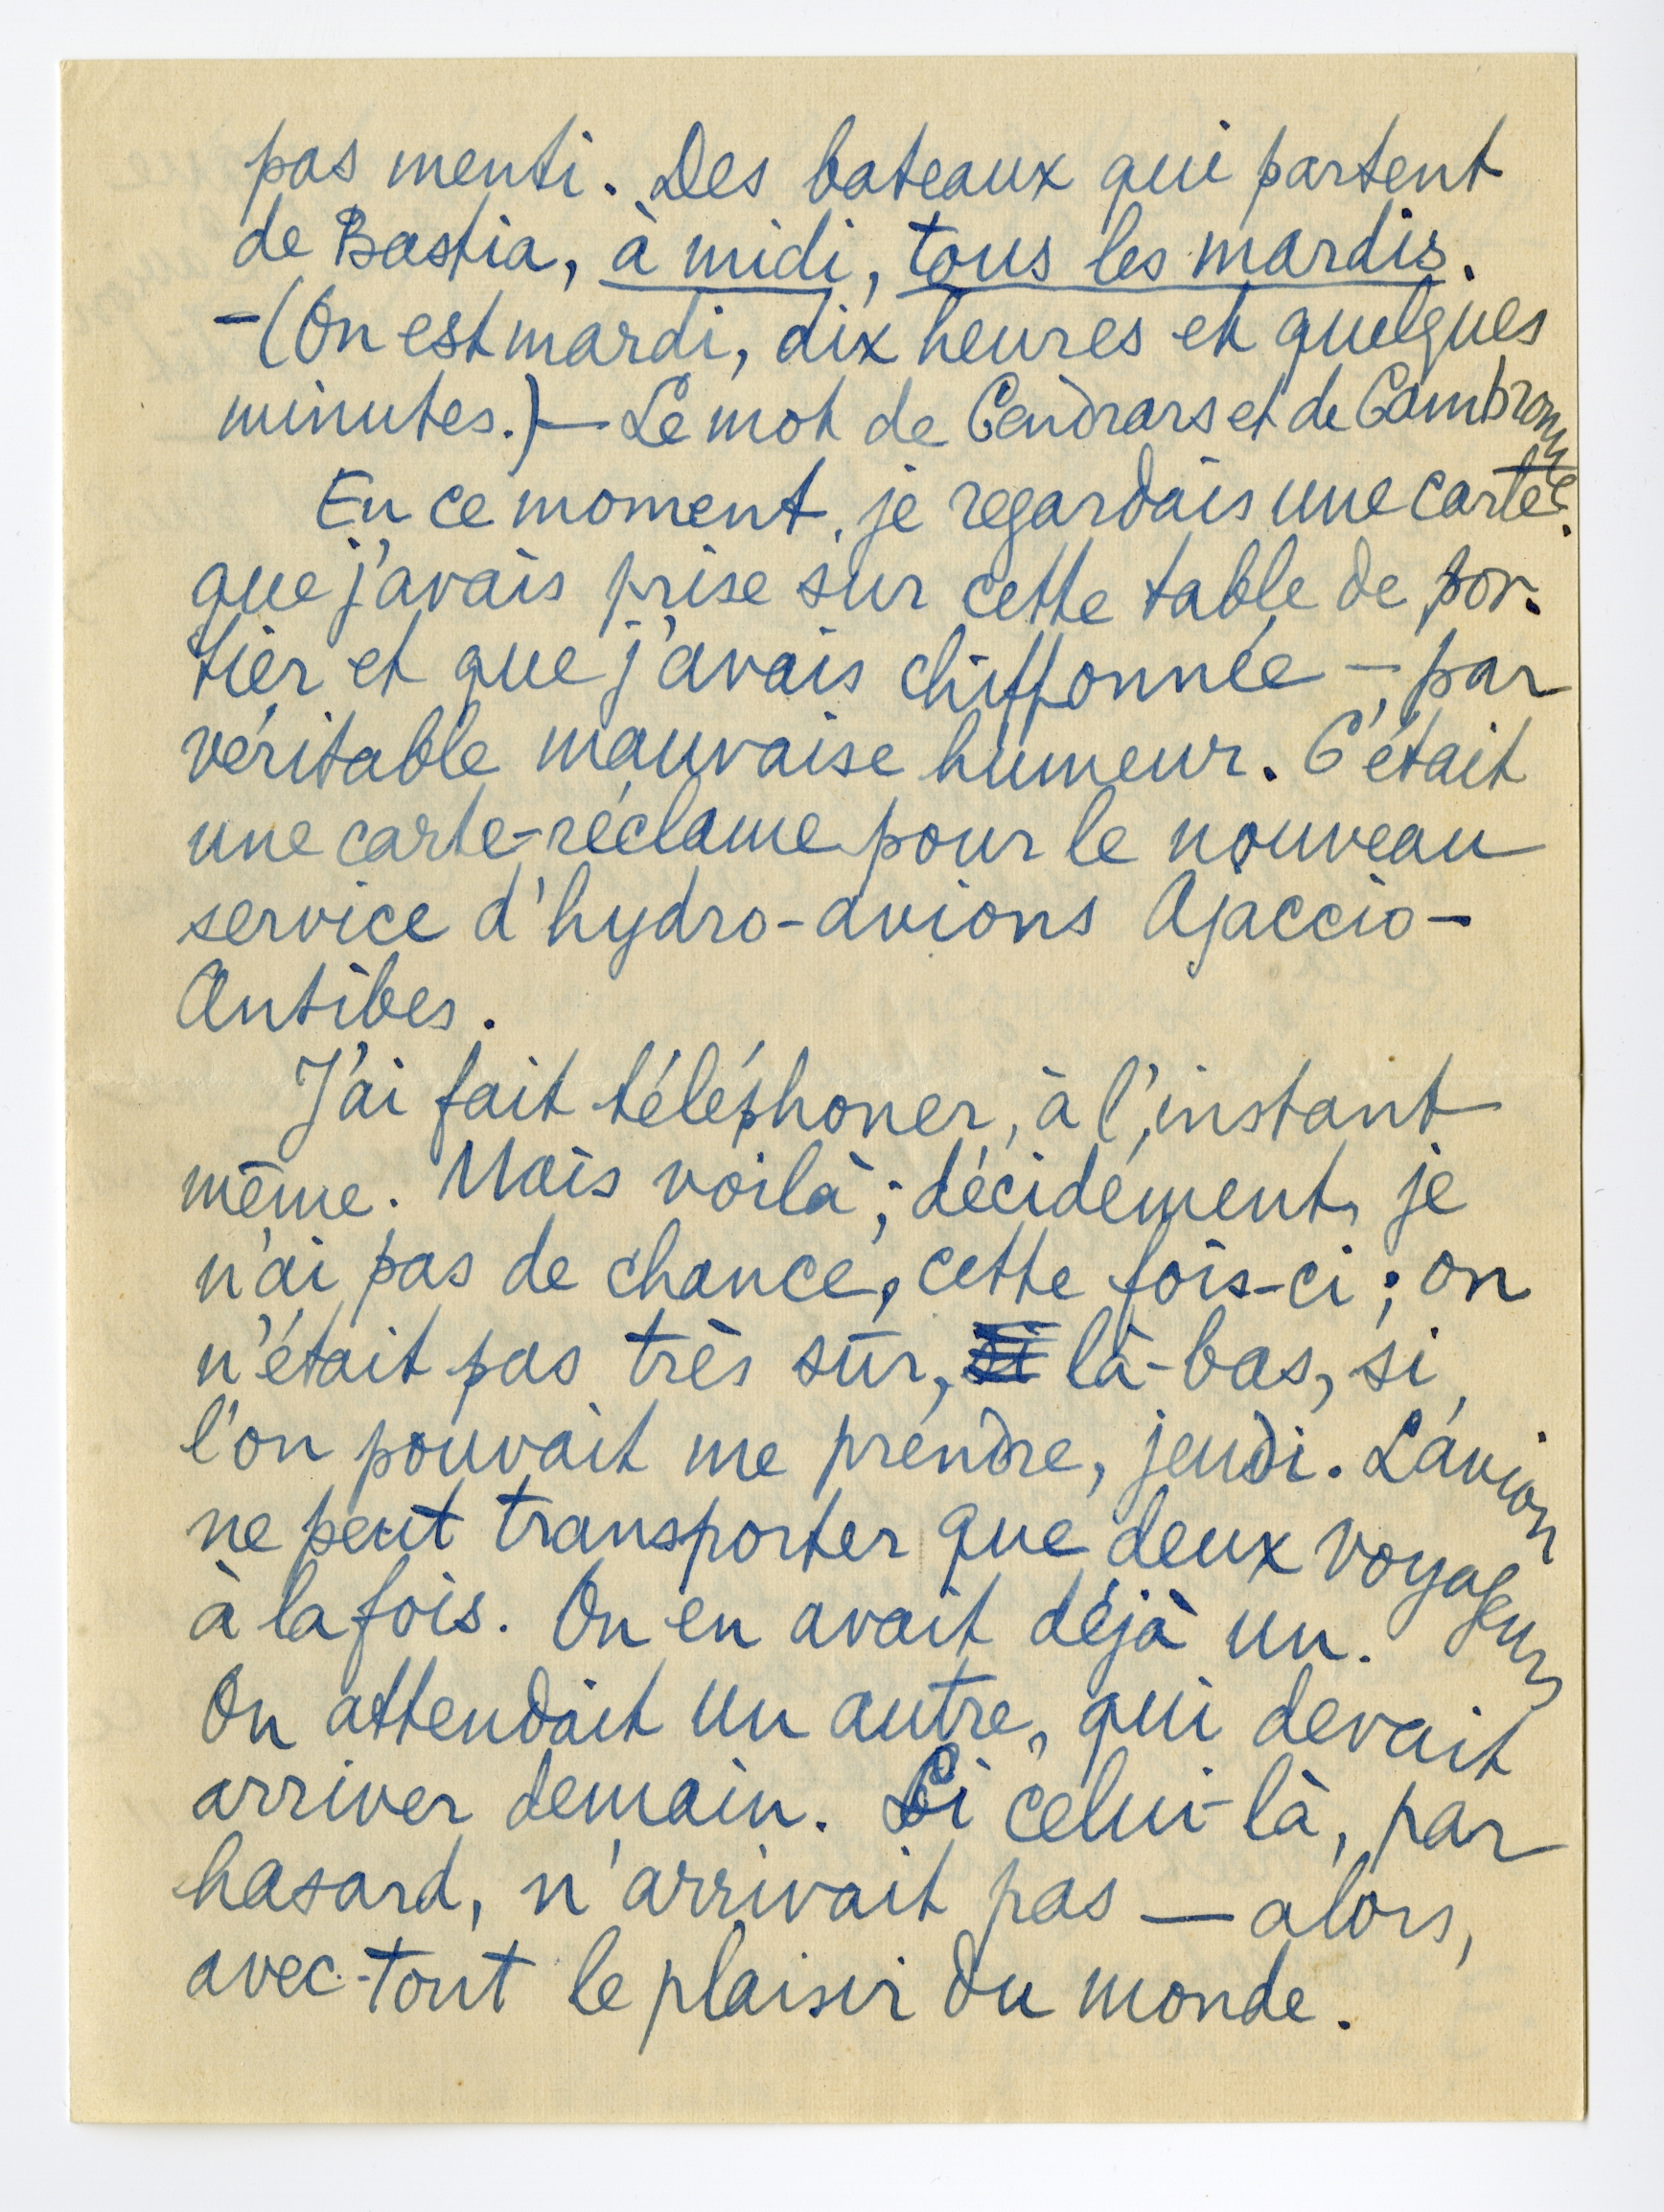 pas menti. Des bateaux qui partent
de Bastia, à midi, tous les mardis.
–(On est mardi, dix heures et quelques
minutes.)— Le mot de Cendrars et de Cambronne.
En ce moment, je regardais une carte
que j'avais prise sur cette table de por-
tier et que j'avais chiffonnée –, par
véritable mauvaise humeur. C'était
une carte-réclame pour le nouveau
service d'hydro-avions Ajaccio–
Antibes.
J'ai fait téléphoner, à l'instant
même. Mais voilà ; décidément, je
n'ai pas de chance, cette fois-ci ; on
n'était pas très sûr, si là-bas, si
l'on pouvait me prendre, jeudi. L'avion
ne peut transporter que deux voyageurs
à la fois. On en avait déjà un.
On attendait un autre, qui devait
arriver demain. Si celui-là, par
hasard, n'arrivait pas — alors,
avec tout le plaisir du monde.